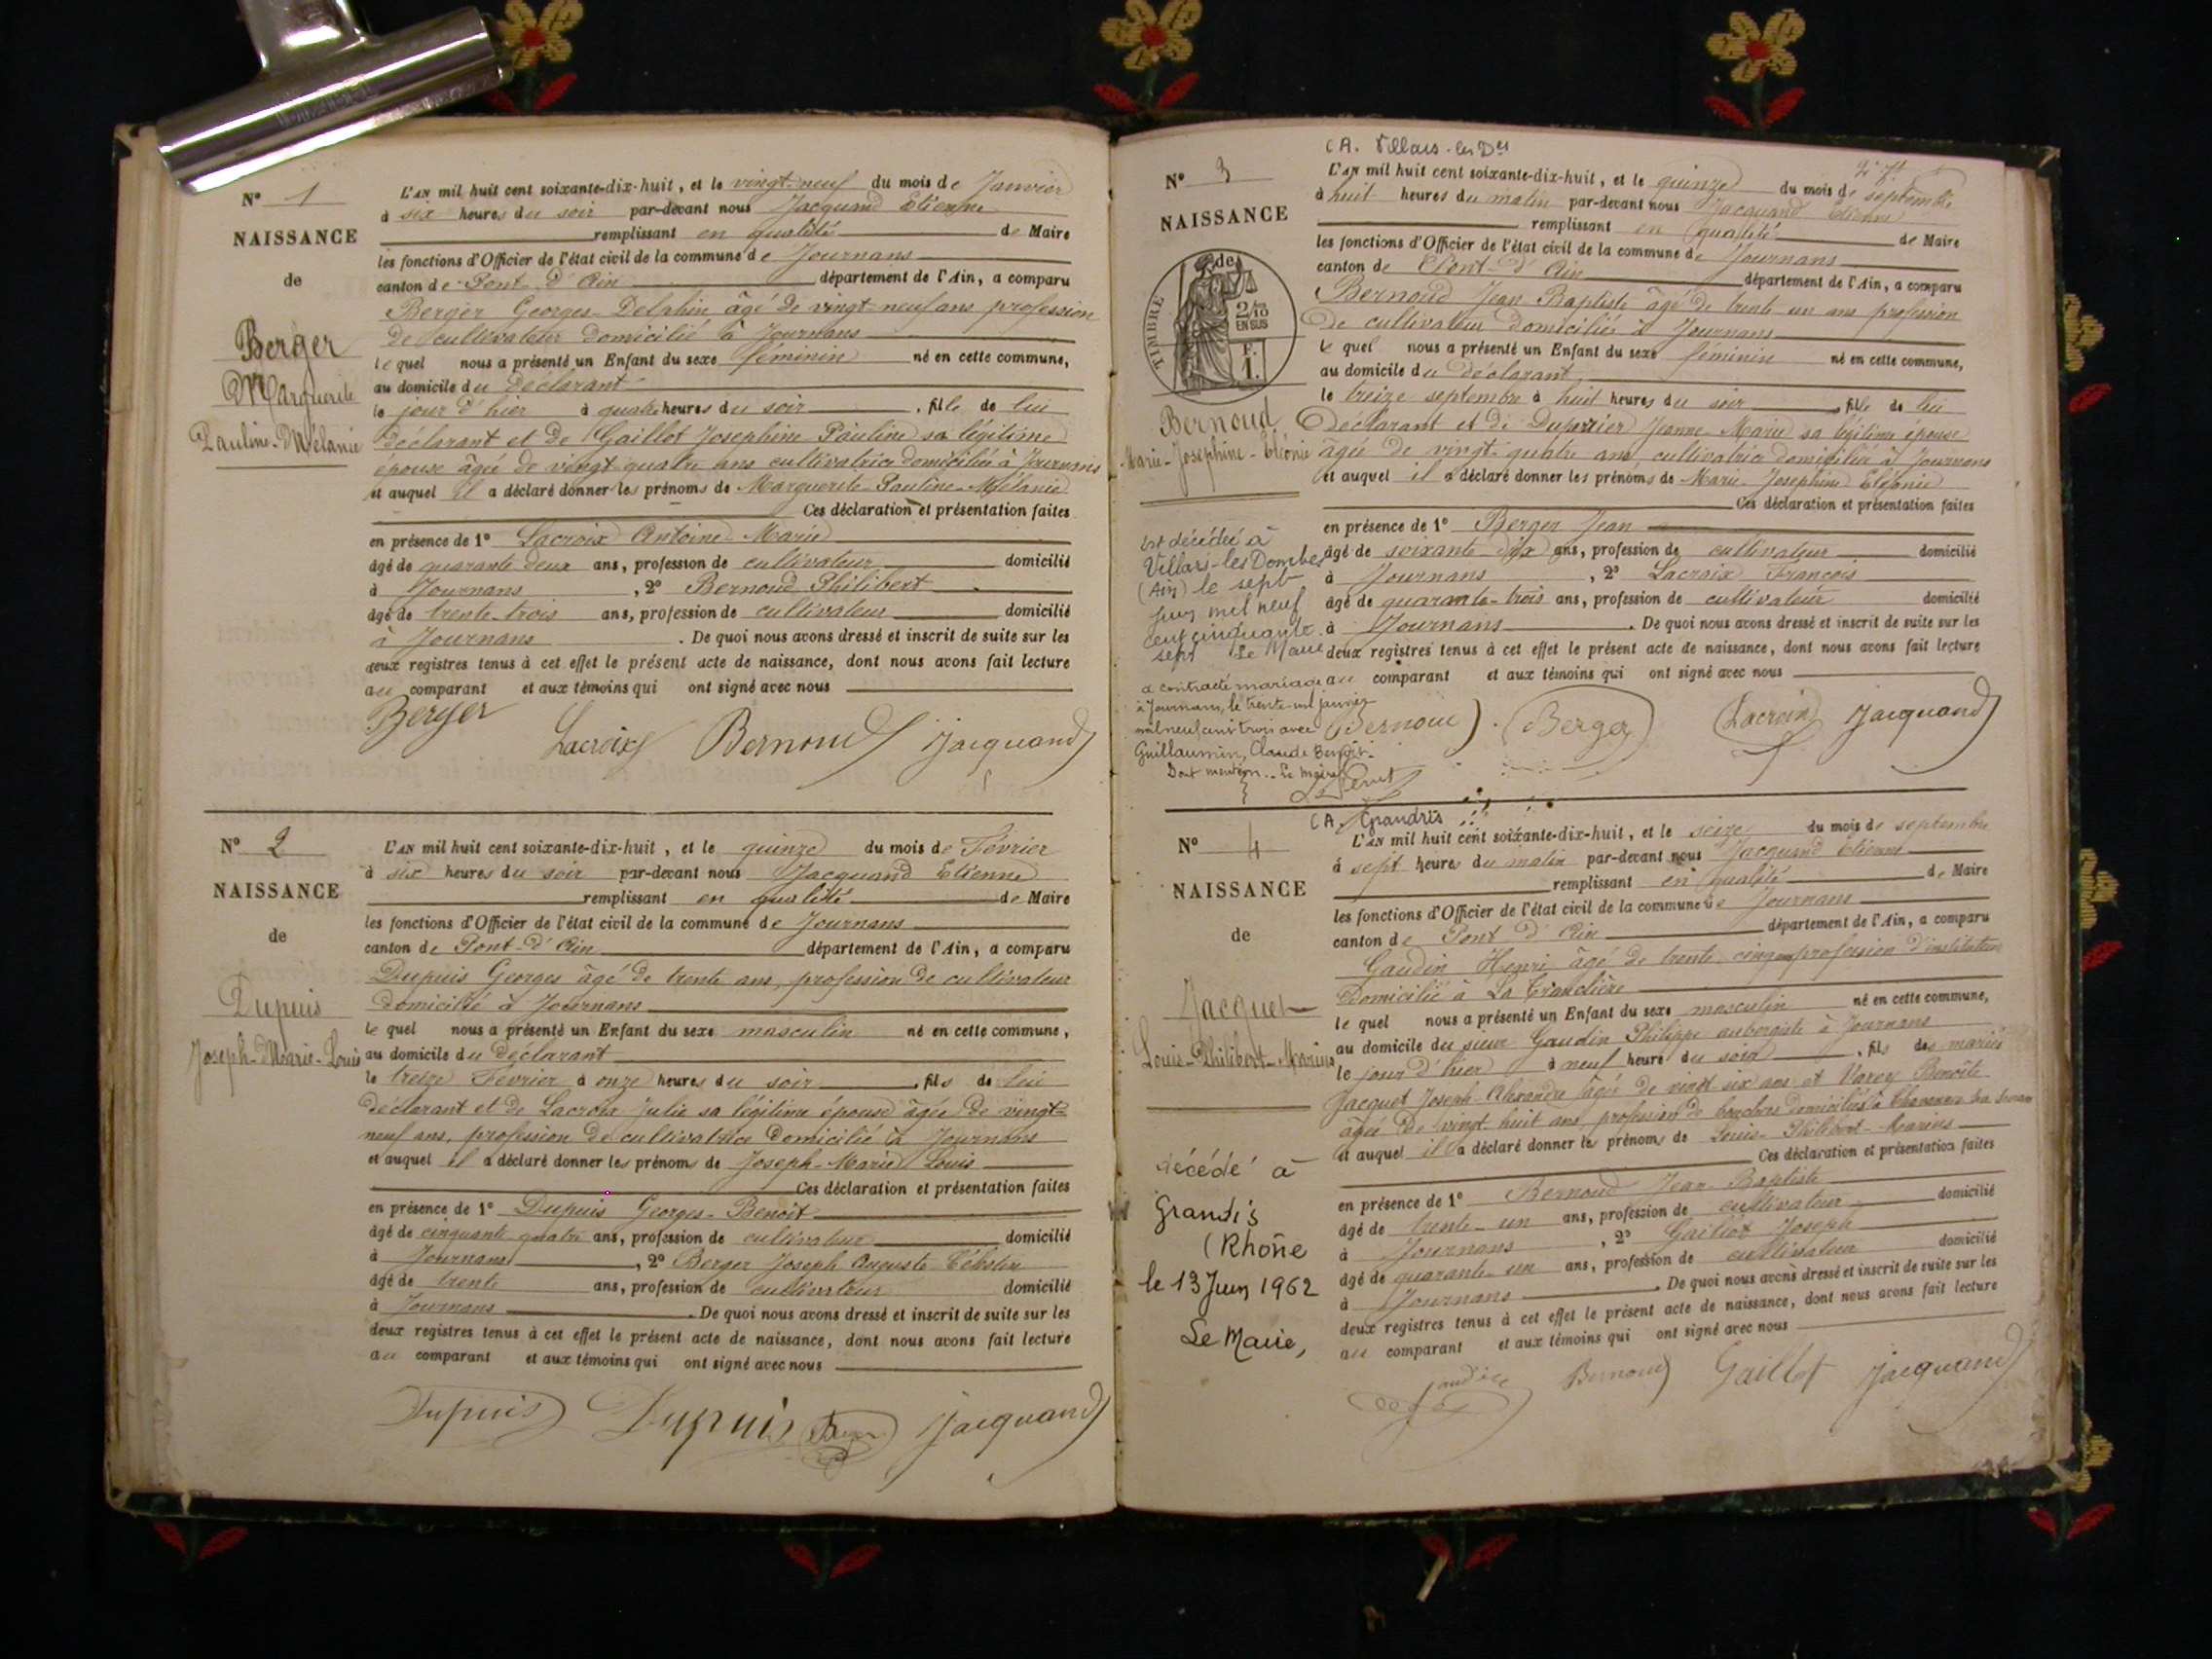 N° 1
NAISSANCE
de
Berger
Marguerite
Pauline-Mélanie
L'AN mil huit cent soixante-dix-huit, et le vingt-neuf du mois de Janvier
à six heures du soir par-devant nous Jacquand Etienne
remplissant en qualité de Maire
les fonctions d'Officier de l'état civil de la commune de Journans
canton de Pont-d'Ain département de l'Ain, a comparu
Berger Georges-Delphin âgé de vingt-neuf ans profession
de cultivateur domicilié à Journans
lequel nous a présenté un Enfant du sexe féminin né en cette commune,
au domicile du déclarant
le jour d'hier à quatre heures du soir, fille de lui
déclarant et de Gaillot Josephine Pauline sa légitime
épouse âgée de vingt-quatre ans cultivatrice domiciliée à Journans
et auquel il a déclaré donner les prénoms de Marguerite-Pauline-Mélanie
Ces déclaration et présentation faites
en présence de 1° Lacroix Antoine Marie
âgé de quarante deux ans, profession de cultivateur domicilié
à Journans, 2° Bernoud Philibert
âgé de trente-trois ans, profession de cultivateur domicilié
à Journans. De quoi nous avons dressé et inscrit de suite sur les
deux registres tenus à cet effet le présent acte de naissance, dont nous avons fait lecture
au comparant et aux témoins qui ont signé avec nous
Berger Lacroix Bernoud Jacquand
N° 2
NAISSANCE
de
Dupuis
Joseph-Marie-Louis
L'AN mil huit cent soixante-dix-huit, et le quinze du mois de Février
à six heures du soir par-devant nous Jacquand Etienne
remplissant en qualité de Maire
les fonctions d'Officier de l'état civil de la commune de Journans
canton de Pont-d'Ain département de l'Ain, a comparu
Dupuis Georges âgé de trente ans, profession de cultivateur
domicilié à Journans
lequel nous a présenté un Enfant du sexe masculin né en cette commune,
au domicile du déclarant
le treize Février à onze heures du soir, fils de lui
déclarant et de Lacroix Julie sa légitime épouse âgée de vingt-
neuf ans, profession de cultivatrice domicilié à Journans
et auquel il a déclaré donner les prénoms de Joseph-Marie Louis
Ces déclaration et présentation faites
en présence de 1° Dupuis Georges-Benoit
âgé de cinquante quatre ans, profession de cultivateur domicilié
à Journans, 2° Berger Joseph Auguste Célestin
âgé de trente ans, profession de cultivateur domicilié
à Journans. De quoi nous avons dressé et inscrit de suite sur les
deux registres tenus à cet effet le présent acte de naissance, dont nous avons fait lecture
au comparant et aux témoins qui ont signé avec nous
Dupuis Dupuis Berger Jacquand
CA. Villars-les-Des
N° 3
NAISSANCE
de
TIMBRE
2/10
EN SUS
F.
1.
Bernoud
Marie-Josephine-Cléonie
L'AN mil huit cent soixante-dix-huit, et le quinze du mois de septembre
à huit heures du matin par-devant nous Jacquand Etienne
remplissant en qualité de Maire
les fonctions d'Officier de l'état civil de la commune de Journans
canton de Pont-d'Ain département de l'Ain, a comparu
Bernoud Jean Baptiste âgé de trente un ans profession
de cultivateur domicilié à Journans
lequel nous a présenté un Enfant du sexe féminin né en cette commune,
au domicile du déclarant
le treize septembre à huit heures du soir, fille de lui
déclarant et de Duperrier Jeanne-Marie sa légitime épouse
âgée de vingt-quatre ans cultivatrice domiciliée à Journans
et auquel il a déclaré donner les prénoms de Marie Joséphine Cléonie
Ces déclaration et présentation faites
en présence de 1° Berger Jean
âgé de soixante dix ans, profession de cultivateur domicilié
à Journans, 2° Lacroix François
âgé de quarante-trois ans, profession de cultivateur domicilié
à Journans. De quoi nous avons dressé et inscrit de suite sur les
deux registres tenus à cet effet le présent acte de naissance, dont nous avons fait lecture
au comparant et aux témoins qui ont signé avec nous
Bernoud Berger Lacroix Jacquand
Est décédée à
Villars-les-Dombes
(Ain) le sept
juin mil neuf
cent cinquante
sept Le Maire
a contracté mariage
à Journans, le trente-un janvier
mil neuf cent trois avec
Guillaumin, Claude Benoit.
Dont mention.- Le Maire
CA. Grandris
N° 4
NAISSANCE
de
Jacquet
Louis-Philibert-Marius
L'AN mil huit cent soixante-dix-huit, et le seize du mois de septembre
à sept heures du matin par-devant nous Jacquand Etienne
remplissant en qualité de Maire
les fonctions d'Officier de l'état civil de la commune de Journans
canton de Pont d'Ain département de l'Ain, a comparu
Gaudin Henri âgé de trente cinq ans profession d'instituteur
domicilié à La Tranclière
lequel nous a présenté un Enfant du sexe masculin né en cette commune,
au domicile du sieur Gaudin Philippe aubergiste à Journans
le jour d'hier à neuf heures du soir, fils des mariés
Jacquet Joseph-Alexandre âgé de vingt six ans et Varey Benoîte
âgée de vingt huit ans profession de bouchers domiciliés à
et auquel il a déclaré donner les prénoms de Louis-Philibert-Marius
Ces déclaration et présentation faites
en présence de 1° Bernoud Jean-Baptiste
âgé de trente-un ans, profession de cultivateur domicilié
à Journans, 2° Gaillot Joseph
âgé de quarante-un ans, profession de cultivateur domicilié
à Journans. De quoi nous avons dressé et inscrit de suite sur les
deux registres tenus à cet effet le présent acte de naissance, dont nous avons fait lecture
au comparant et aux témoins qui ont signé avec nous
Bernoud Gaillot Jacquand
décédé à
Grandis
(Rhône
le 13 Juin 1962
Le Maire,